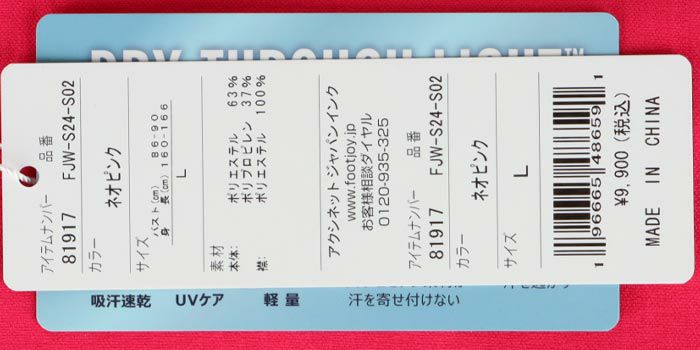 DRY THROUGH LIGHT™
アイテムナンバー 品番
81917 FJW-S24-S02
カラー
ネオピンク
サイズ
バスト(cm) 86-90
身長(cm) 160-166
L
素材
本体: ポリエステル 63%
ポリプロピレン 37%
襟: ポリエステル 100%
アクシネット ジャパン インク
www.footjoy.jp
お客様相談ダイヤル
0120-935-325
アイテムナンバー 品番
81917 FJW-S24-S02
カラー
ネオピンク
サイズ
L
1 96665 48659 1
¥9,900(税込)
MADE IN CHINA
吸汗速乾 UVケア 軽量
汗を寄せ付けない